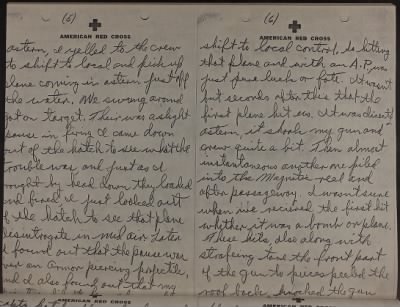 (5)
AMERICAN RED CROSS
astern, I yelled to the crew
to shift to local and pick up
plane coming in astern just off
the water, we swung around
got on target. There was a slight
pause in firing & I came down
out of the hatch to see what the
trouble was and just as I
brought my head down they loaded
and fired & I just looked out
of the hatch to see that plane
desintregrate in mid air. Later
I found out that the pause was
over an Armor piercing projectile,
and I also found out that my
AMERICAN RED CROSS
(6)
AMERICAN RED CROSS
shift to local control. So hitting
that plane and with an A.P. was
just pure luck or fate. It wasn't
but seconds after this that the
first plane hit us. It was direct
astern, it shook my gun and
crew quite a bit. Then almost
instantaneous another one piled
into the Magnitie real end
after passageway. I wasn't sure
when we recieved the first hit
whether it was a bomb or plane.
These hits, also along with
strafeing tore the front part
of the gun to pieces peeled the
roof back, knocked the gun
AMERICAN RED CROSS